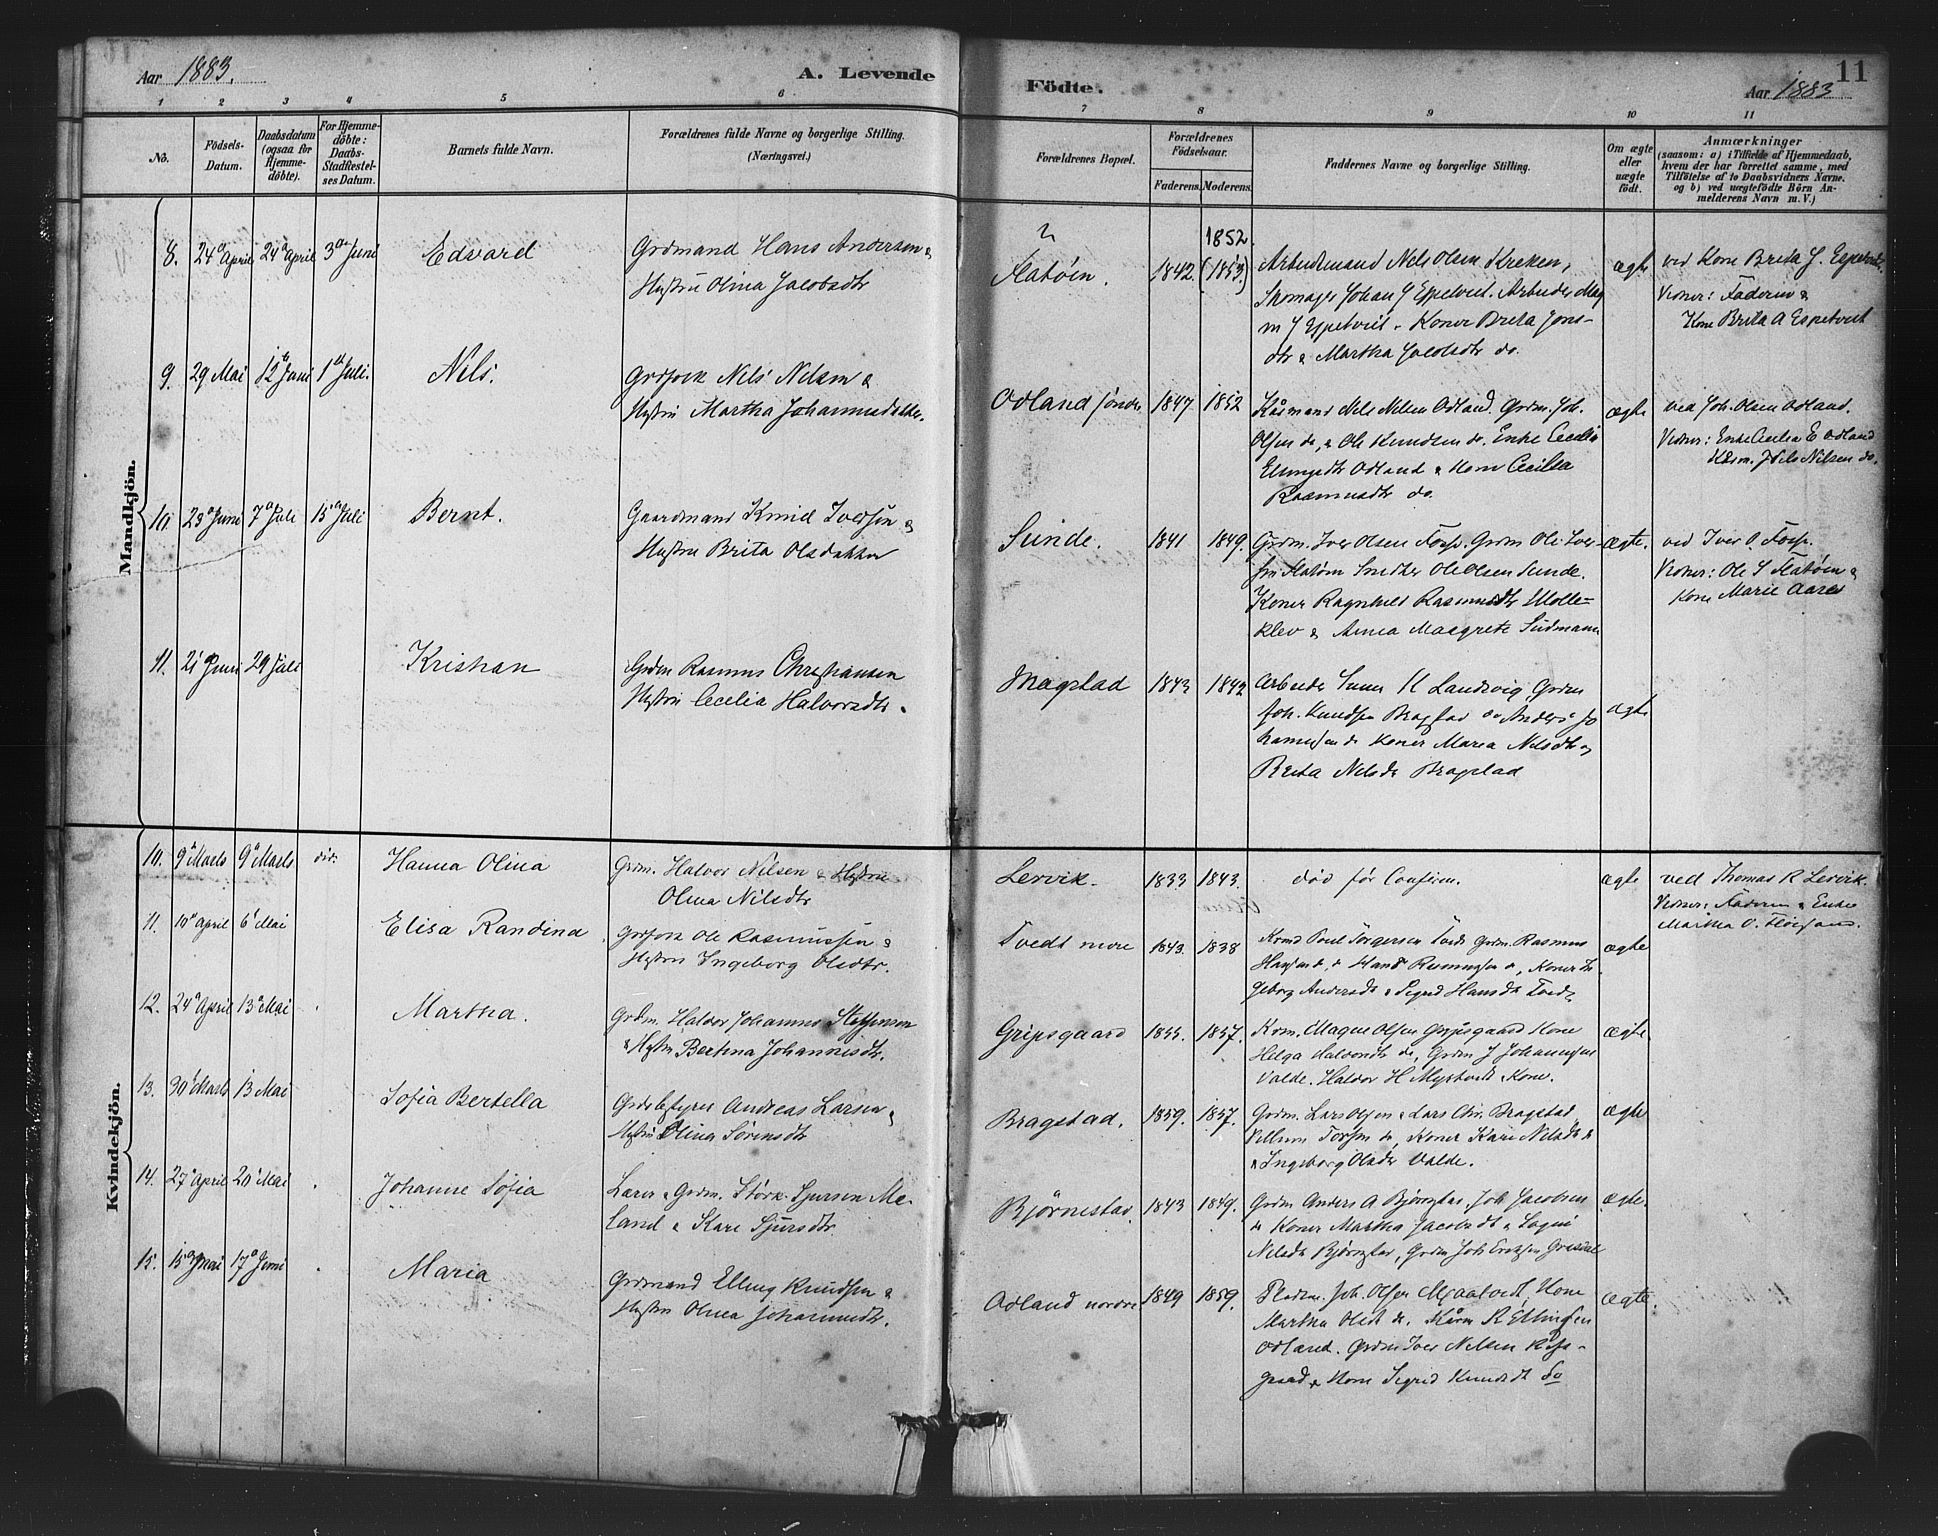 Aar 1883.
A. Levende
Födte.
Aar 1883
11
1 2 3 4 5 6 7 8 9 10 11
No.
Födsels-
Datum.
Daabsdatum
(ogsaa for
Hjemme-
döbte).
For Hjemme-
döbte:
Daabs-
Stadfæstel-
ses Datum.
Barnets fulde Navn.
Forældrenes fulde Navne og borgerlige Stilling.
(Næringsvei.)
Forældrenes Bopæl.
Forældrenes
Födselsaar.
Faderens.
Moderens.
Faddernes Navne og borgerlige Stilling.
Om ægte
eller
uægte
födt.
Anmærkninger
(saasom: a) i Tilfælde af Hjemmedaab,
hvem der har forrettet samme, med
Tilföielse af to Daabsvidners Navne.
og b) ved uægtefödte Börn An-
melderens Navn m. V.)
Mandkjön.
8. 24 April 24 April 3 Juni Edvard
Grdmand Hans Andersen &
Hustru Olina Jacobsdtr
Flatøen. 1842. 1852. (1853)
Arbeidsmand Nels Olsen Kreken,
Skomager Johan J Espetveit. Arbeider Mag
n J Espetveit. Koner Brita Jons-
dtr & Martha Jacobsdtr do.
ægte
ved Kone Brita J. Espetveit.
Vidner: Faderen &
Kone Brita A Espetveit
9. 29 Mai 12 Juni 1 Juli. Nils.
Grdfolk Nels Nelsen &
Hustru Martha Johannesdatter.
Odland søndre 1847 1852
Kårmand Nels Nelsen Odland. Grdm. Joh.
Olsen do, & Ole Knudsen do. Enke Cecilia
Ellingsdtr Odland & Kone Cecilia
Rasmusdtr do.
ægte
ved Joh. Olsen Odland.
Vidner: Enke Cecilia E Odland
Kårm. Nils Nilsen do.
10 23 Juni 7 Juli 15 Juli Bernt.
Gaardmand Knud Iversen &
Hustru Brita Olsdatter
Sunde. 1841 1849.
Grdm. Iver Olsen Foss. Grdm Ole Iver-
sen Flatøen Snedker Ole Olsen Sunde.
Koner Ragnhild Rasmusdtr Molle-
klev & Anna Margrete Sudmann
ægte.
ved Iver O. Foss.
Vidner: Ole I Flatøen &
Kone Marie Aares
11. 21 Juni 29 Juli Kristian
Grdm Rasmus Christiansen
Hustru Cecilia Halvorsdtr.
Magstad 1843 1842
Arbeider H Landsvig Grdm
Joh. Knudsen Bragstad & Anders Jo
hannessen do Koner Maria Nelsdtr &
Brita Nelsdtr Bragstad
ægte
Kvindekjön.
10. 9 Marts 9 Marts Hanna Olina
Grdm. Halvor Nilsen & Hustru
Olina Nilsdtr
Lervik. 1833 1843.
død før Confirm.
ægte
ved Thomas R Lervik.
Vidner: Faderen & Enke
Martha O.
11. 10 April 6 Mai Elisa Randina
Grdfolk Ole Rasmussen &
Hustru Ingeborg Olsdtr.
Tvedt 1843. 1838
Poul Torgersen Tvedt Grdm. Rasmus
Hansen do, & Hans Rasmussen do, Koner In
geborg Andersdtr & Sigrid Hansdtr Tvedt
ægte
12. 24 April 13 Mai Martha.
Grdm. Halvor Johannes Steffensen
& Hustru Bertina Johannesdtr.
Gripsgaard 1833. 1837.
Krm. Magne Olsen Gripsgaard Kone
Helga Halvorsdtr do, Grdm J Johannessen
Valde. Halvor H Myrtvedt & Kone.
ægte
13. 30 Marts 13 Mai Sofia Bertella
Grdbestyrer Andreas Larsen &
Hustru Olina Sørensdtr
Bragstad. 1859. 1857.
Grdm. Lars Olsen & Lars Chr. Bragstad
Villum Torsen do, Koner Kari Nilsdtr do
& Ingeborg Olsdtr Valde.
ægte
14. 27 April 20 Mai Johanne Sofia
Lærer & Grdm. Størk. Sjursen Me-
land & Kari Sjursdtr.
Bjørnestad. 1843 1849.
Grdm Anders A Bjørnestad. Joh Jacobsen
do Koner Martha Jacobsdt &
Nilsdt Bjørnestad, Grdm Joh Eriksen
ægte
15. 15 Mai 17 Juni Maria
Grdmand Elling Knudsen &
Hustru Olina Johannesdtr.
Odland nordre 1849 1859.
Pladsm. Joh. Olsen Mjaatvedt, Kone
Martha Olsdt do. Kårm R Ellingsen
Odland. Grdm Iver Nelsen
gaard & Kone Sigrid Knudsdt do
ægte.